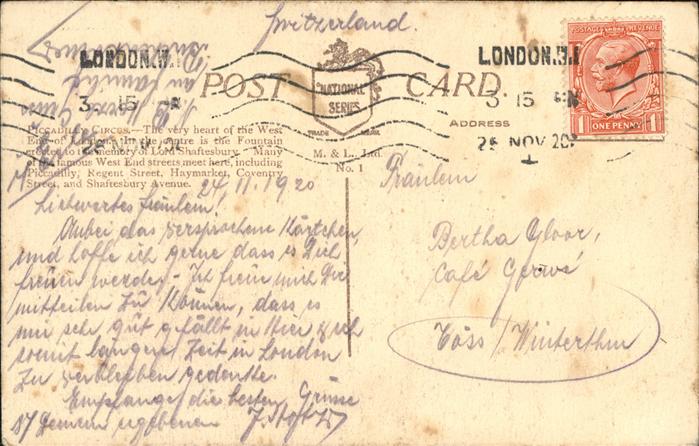 Switzerland.
LONDON.W.1
3 15 PM
POST CARD.
NATIONAL
SERIES
TRADE MARK
M. & L., Ltd.
No. 1
ADDRESS
LONDON.W.1
3 15 PM
25 NOV 20
1
POSTAGE REVENUE
1 ONE PENNY 1
PICCADILLY CIRCUS.—The very heart of the West
End of London. In the centre is the Fountain
erected to the memory of Lord Shaftesbury. Many
of the famous West End streets meet here, including
Piccadilly, Regent Street, Haymarket, Coventry
Street, and Shaftesbury Avenue.
24.11.1920
Liebwertes Fräulein!
Anbei das versprochene Kärtchen,
und hoffe ich gerne dass es Dich
freuen werde. - Ich freue mich Dir
mitteilen zu können, dass es
mir sehr gut gefällt in hier & ich
somit längere Zeit in London
zu verbleiben gedenke.
Empfange die besten Grüsse
Fräulein
Bertha Gloor,
Café Gervé
Töss/Winterthur